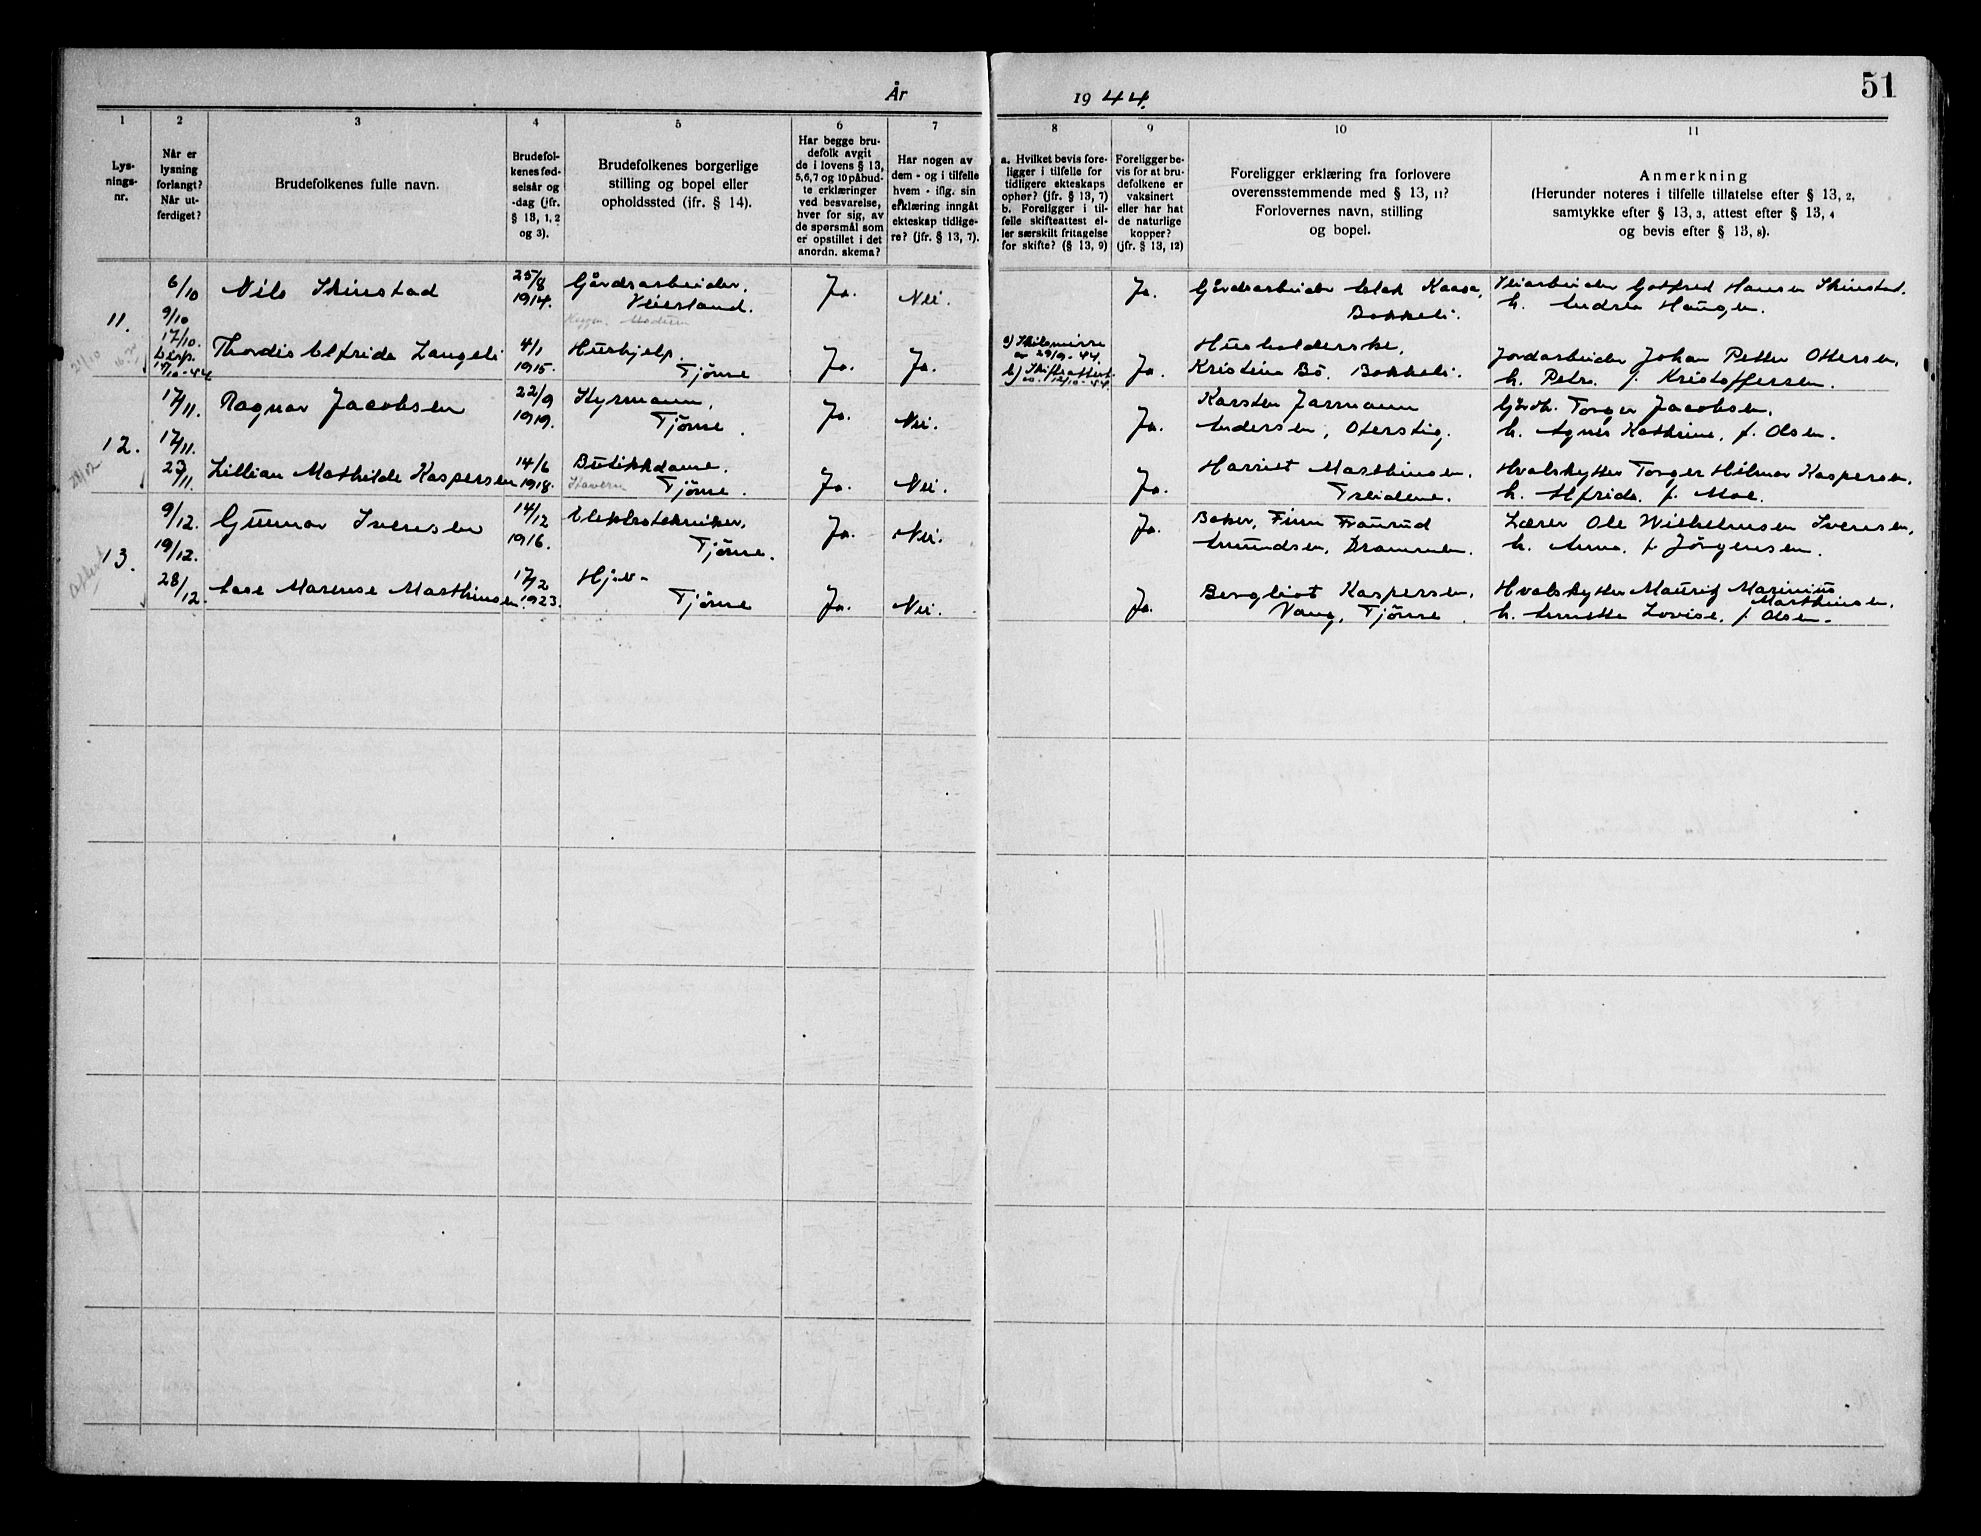 51
År 1944.
1 2 3 4 5 6 7 8 9 10 11
Lys-
nings-
nr.
Når er
lysning
forlangt?
Når ut-
ferdiget?
Brudefolkenes fulle navn.
Brudefol-
kenes fød-
selsår og
-dag (jfr.
§ 13, 1, 2
og 3).
Brudefolkenes borgerlige
stilling og bopel eller
opholdssted (jfr. § 14).
Har begge bru-
defolk avgit
de i lovens § 13,
5,6,7 og 10 påbud-
te erklæringer
ved besvarelse,
hver for sig, av
de spørsmål som
er opstillet i det
anordn. skema?
Har nogen av
dem - og i tilfelle
hvem - iflg. sin
erklæring inngåt
ekteskap tidlige-
re? (jfr. § 13, 7).
a. Hvilket bevis fore-
ligger i tilfelle for
tidligere ekteskaps
ophør? (jfr. § 13, 7)
b. Foreligger i til-
felle skifteattest el-
ler særskilt fritagelse
for skifte? (§ 13, 9)
Foreligger be-
vis for at bru-
defolkene er
vaksinert
eller har hat
de naturlige
kopper?
(jfr. § 13, 12)
Foreligger erklæring fra forlovere
overensstemmende med § 13, 11?
Forlovernes navn, stilling
og bopel.
Anmerkning
(Herunder noteres i tilfelle tillatelse efter § 13, 2,
samtykke efter § 13, 3, attest efter § 13, 4
og bevis efter § 13, 8).
11.
21/10
6/10
9/10
17/10.
17/10-44
Nils Skinstad
25/8
1914.
Gårdsarbeider.
Veierland.
Modum
Ja.
Nei.
Ja.
Gårdsarbeider Kaasa,
Bakkeli.
Veiarbeider Gotfred Hansen Skinstad.
h. Andrea Haugen.
Thordis Elfrida Langeli
4/1
1915.
Hushjelp.
Tjøme
Ja.
Ja.
a) Skilsmisse
av 29/9-44.
b) Skifteattest
av 12/10-44
Ja.
Husholderske,
Kristine Bö. Bakkeli.
Jordarbeider Johan Petter Ottersen
h. Petra f. Kristoffersen.
12.
28/12
17/11.
17/11.
27/11.
Ragnar Jacobsen
22/9
1919.
Styrmann,
Tjøme.
Ja.
Nei.
Ja.
Karsten Jarmann
Andersen, Oterstig.
Gårdbr. Torger Jacobsen,
h. Agnes Kathrine, f. Olsen.
Lillian Mathilde Kaspersen
14/6
1918.
Butikkdame.
Stavern Tjøme.
Ja.
Nei.
Ja.
Harriet Marthinsen.
Treidene.
Hvalskytter Torger Hilmar Kaspersen.
h. Alfrida. f. Moe.
13.
Attest
9/12.
19/12.
28/12.
Gunnar Iversen
14/12
1916.
Elektrotekniker,
Tjøme.
Ja.
Nei.
Ja.
Baker, Finn Fraurud
Amundsen, Drammen.
Lærer Ole Wilhelmsen Iversen,
h. Anna. f. Jörgensen.
Aase Marense Marthinsen
17/2
1923.
Hj.v-
Tjøme
Ja.
Nei.
Ja.
Bergliot Kaspersen,
Vang, Tjöme.
Hvalskytter Mauritz Marinius
Marthinsen.
h. Annette Lovise, f. Olsen.